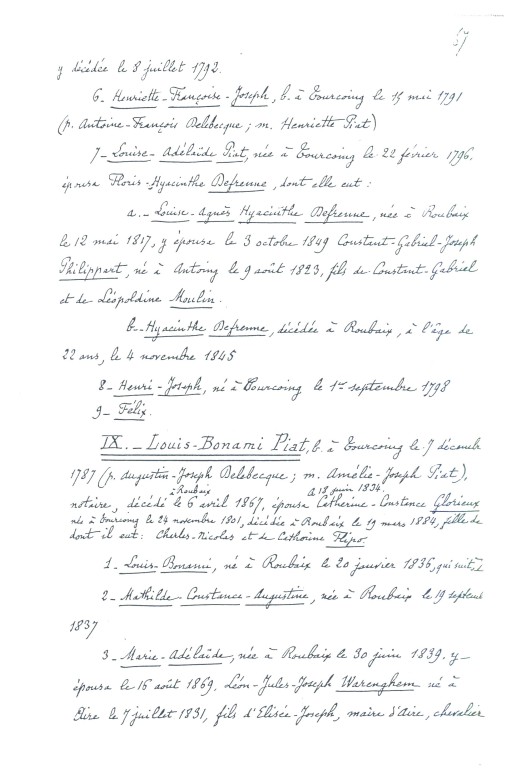 57
y décédée le 8 juillet 1792.
6_ Henriette-Françoise-Joseph, b. à Tourcoing le 15 mai 1791
(p. Antoine-François Delebecque; m. Henriette Piat)
7_ Louise-Adélaïde Piat, née à Tourcoing le 22 février 1796.
épousa Floris-Hyacinthe Defrenne, dont elle eut :
a._ Louise-Agnès Hyacinthe Defrenne, née à Roubaix
le 12 mai 1817, y épousa le 3 octobre 1849 Constant-Gabriel-Joseph
Philippart, né à Antoing le 9 août 1823, fils de Constant-Gabriel
et de Léopoldine Moulin.
b_ Hyacinthe Defrenne, décédée à Roubaix, à l'âge de
22 ans, le 4 novembre 1845
8_ Henri-Joseph, né à Tourcoing le 1er septembre 1798
9_ Félix.
IX._ Louis-Bonami Piat, b. à Tourcoing le 7 décemb
1787 (p. Augustin-Joseph Delebecque; m. Amélie-Joseph Piat),
à Roubaix
18 juin 1834.
notaire, décédé le 6 avril 1867, épousa Catherine-Constance Glorieux
née à Tourcoing le 24 novembre 1801, décédée à Roubaix le 19 mars 1884, fille de
dont il eut: Charles-Nicolas et de Catherine Flipo.
1_ Louis-Bonami, né à Roubaix le 20 janvier 1836, qui suit
2_ Mathilde-Constance-Augustine, née à Roubaix le 19 septemb
1837
3_ Marie-Adélaïde, née à Roubaix le 30 juin 1839. y
épousa le 16 août 1869, Léon-Jules-Joseph Warenghem né à
Aire le 7 juillet 1831, fils d'Elisée-Joseph, maire d'Aire, chevalier